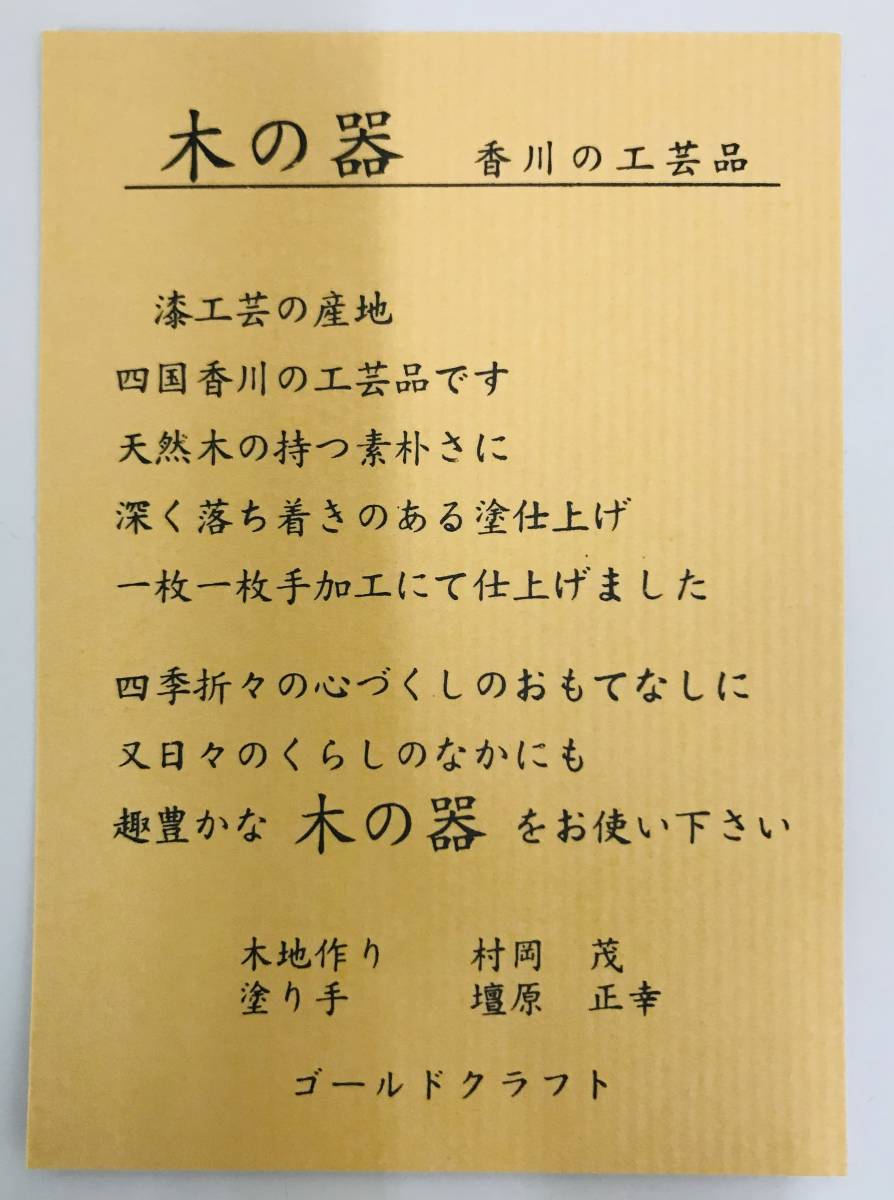 木の器 香川の工芸品
漆工芸の産地
四国香川の工芸品です
天然木の持つ素朴さに
深く落ち着きのある塗仕上げ
一枚一枚手加工にて仕上げました
四季折々の心づくしのおもてなしに
又日々のくらしのなかにも
趣豊かな 木の器 をお使い下さい
木地作り 村岡 茂
塗り手 壇原 正幸
ゴールドクラフト